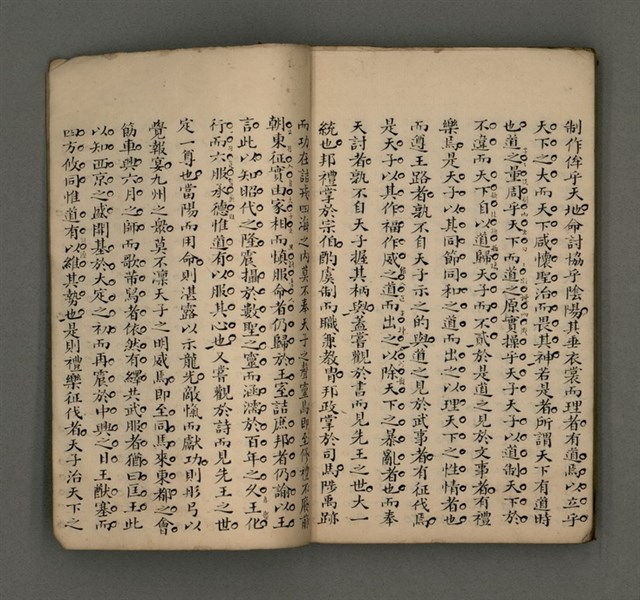 制作侔乎天地命討協乎陰陽其垂衣裳而理者有道焉以立乎
天下之大而天下咸懷聖治而畏其神若是者所謂天下有道時
也道之量周乎天下而道之原實操乎天子天子以道制天下於
不違而天下自以道歸天子而不貳於是道之見於文事者有禮
樂焉是天子以其同節同和之道而出之以理天下之性情者也
而尊王路者孰不自天子示之的與道之見於武事者有征伐焉
是天子以其作福作威之道而出之以除天下之暴亂者也而奉
天討者孰不自天子握其柄與蓋嘗觀於書而見先王之世大一
統也邦禮掌於宗伯酌虞制而職兼教冑邦政掌於司馬陟禹跡
而功在詰戎四海之內莫不奉天子之聲靈焉即至作禮不廢前
朝東征實由家相而慎服命者仍歸於王室詰庶邦者仍諭以王
言此以知昭代之隆震攝於數聖之靈而涵濡於百年之久王化
行而六服承德惟道有以服其心也又嘗觀於詩而見先王之世
定一尊也當陽而用命則湛露以示龍光敵愾而獻功則彤弓以
覺報宴九州之眾莫不凜天子之明威焉即至司馬來東都之會
筋車興六月之師而歌芾舄者依然有繹共武服者猶曰匡王此
以知西京之盛開基於大定之初而再震於中興之日王猷塞而
四方攸同惟道有以維其勢也是則禮樂征伐者天子治天下之